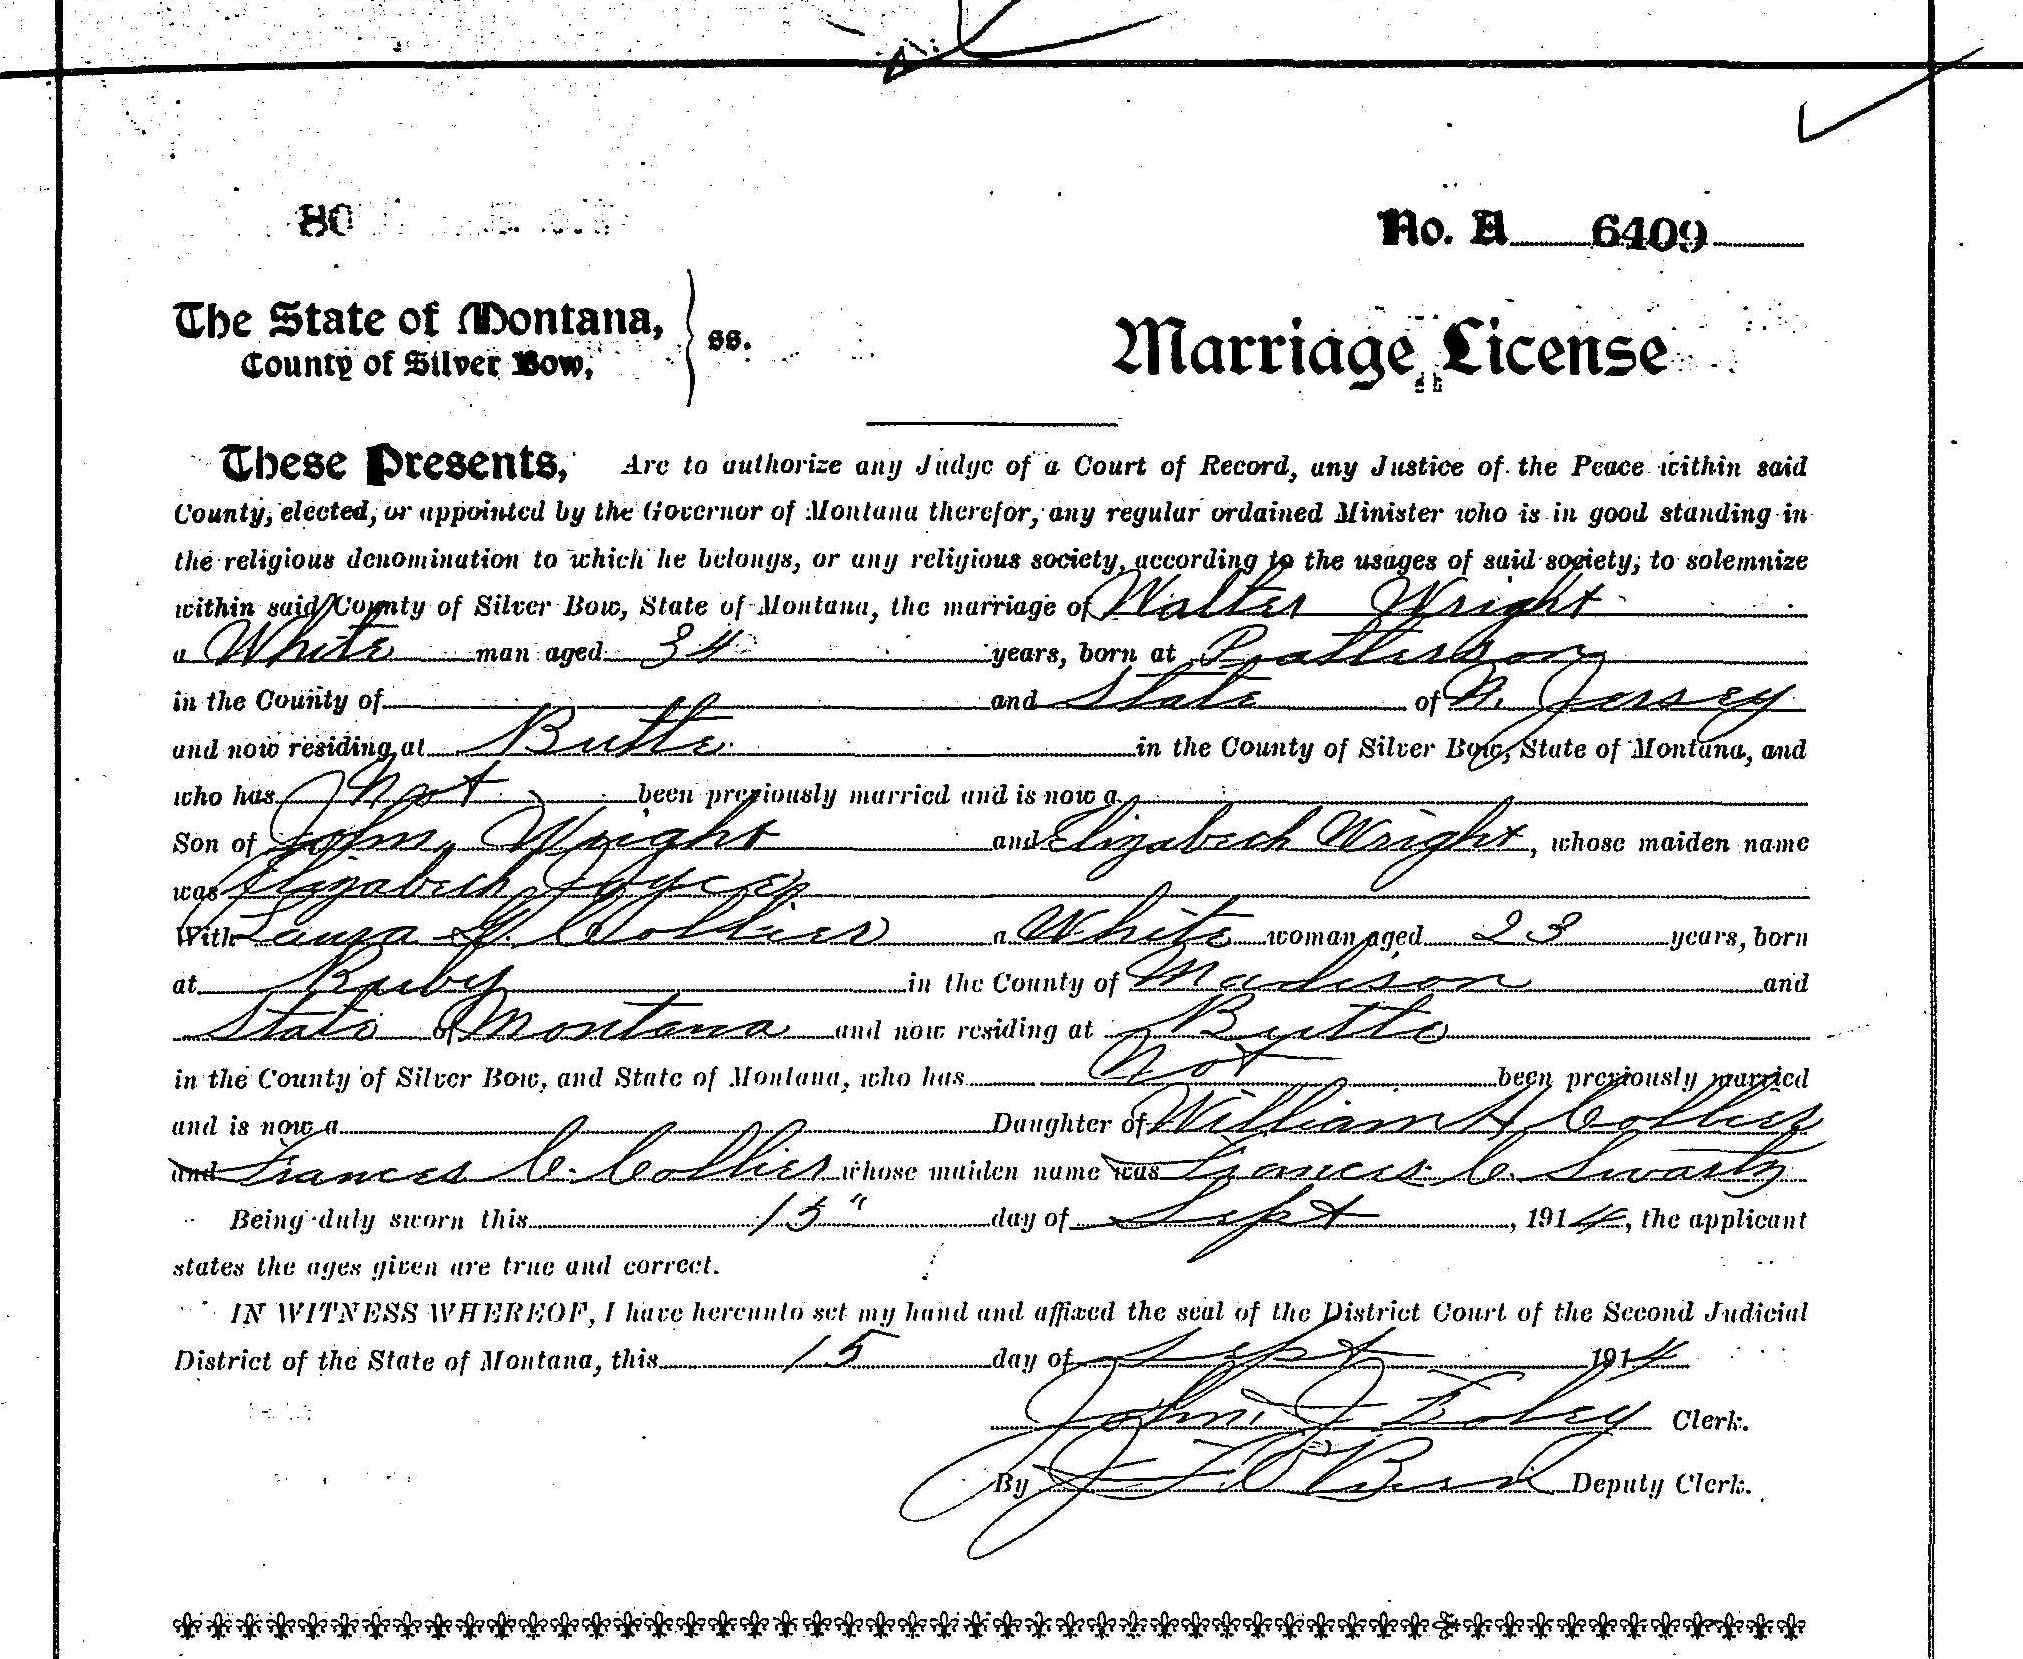 80
No. A 6409
The State of Montana,
County of Silver Bow,
ss.
Marriage License
These Presents, Are to authorize any Judge of a Court of Record, any Justice of the Peace within said
County, elected, or appointed by the Governor of Montana therefor, any regular ordained Minister who is in good standing in
the religious denomination to which he belongs, or any religious society, according to the usages of said society, to solemnize
within said County of Silver Bow, State of Montana, the marriage of Walter Wright
a White man aged 34 years, born at Patterson
in the County of and State of N. Jersey
and now residing at Butte in the County of Silver Bow, State of Montana, and
who has not been previously married and is now a
Son of John Wright and Elizabeth Wright, whose maiden name
was Elizabeth
With Laura G. Collier a White woman aged 23 years, born
at Ruby in the County of Madison and
State of Montana and now residing at Butte
in the County of Silver Bow, and State of Montana, who has not been previously married
and is now a Daughter of William H Collier
and Frances C. Collier whose maiden name was Frances C. Swartz
Being duly sworn this 15" day of Sept, 1914, the applicant
states the ages given are true and correct.
IN WITNESS WHEREOF, I have hereunto set my hand and affixed the seal of the District Court of the Second Judicial
District of the State of Montana, this 15 day of Sept 1914
John J Foley Clerk.
By J F O'Brien Deputy Clerk.